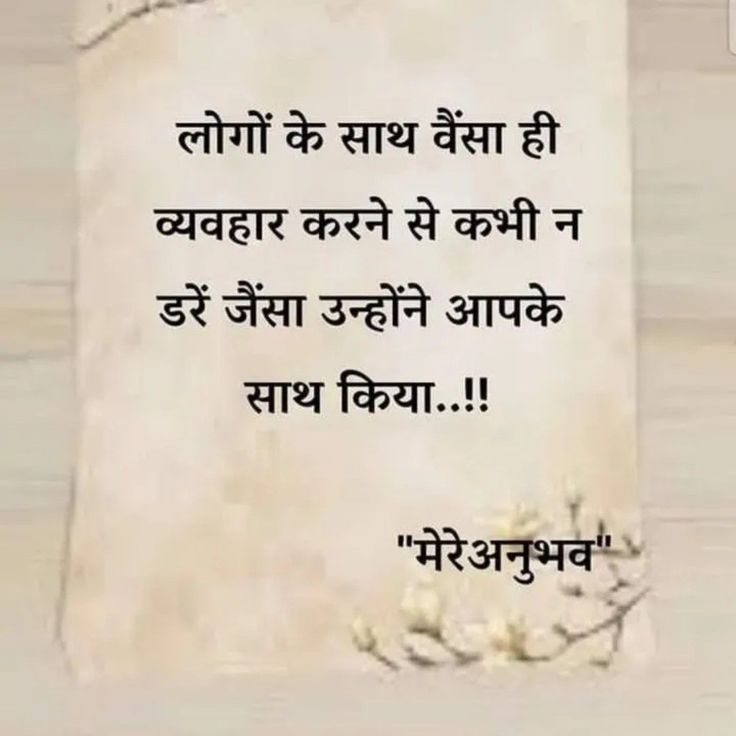 लोगों के साथ वैंसा ही
व्यवहार करने से कभी न
डरें जैंसा उन्होंने आपके
साथ किया..!!
"मेरेअनुभव"